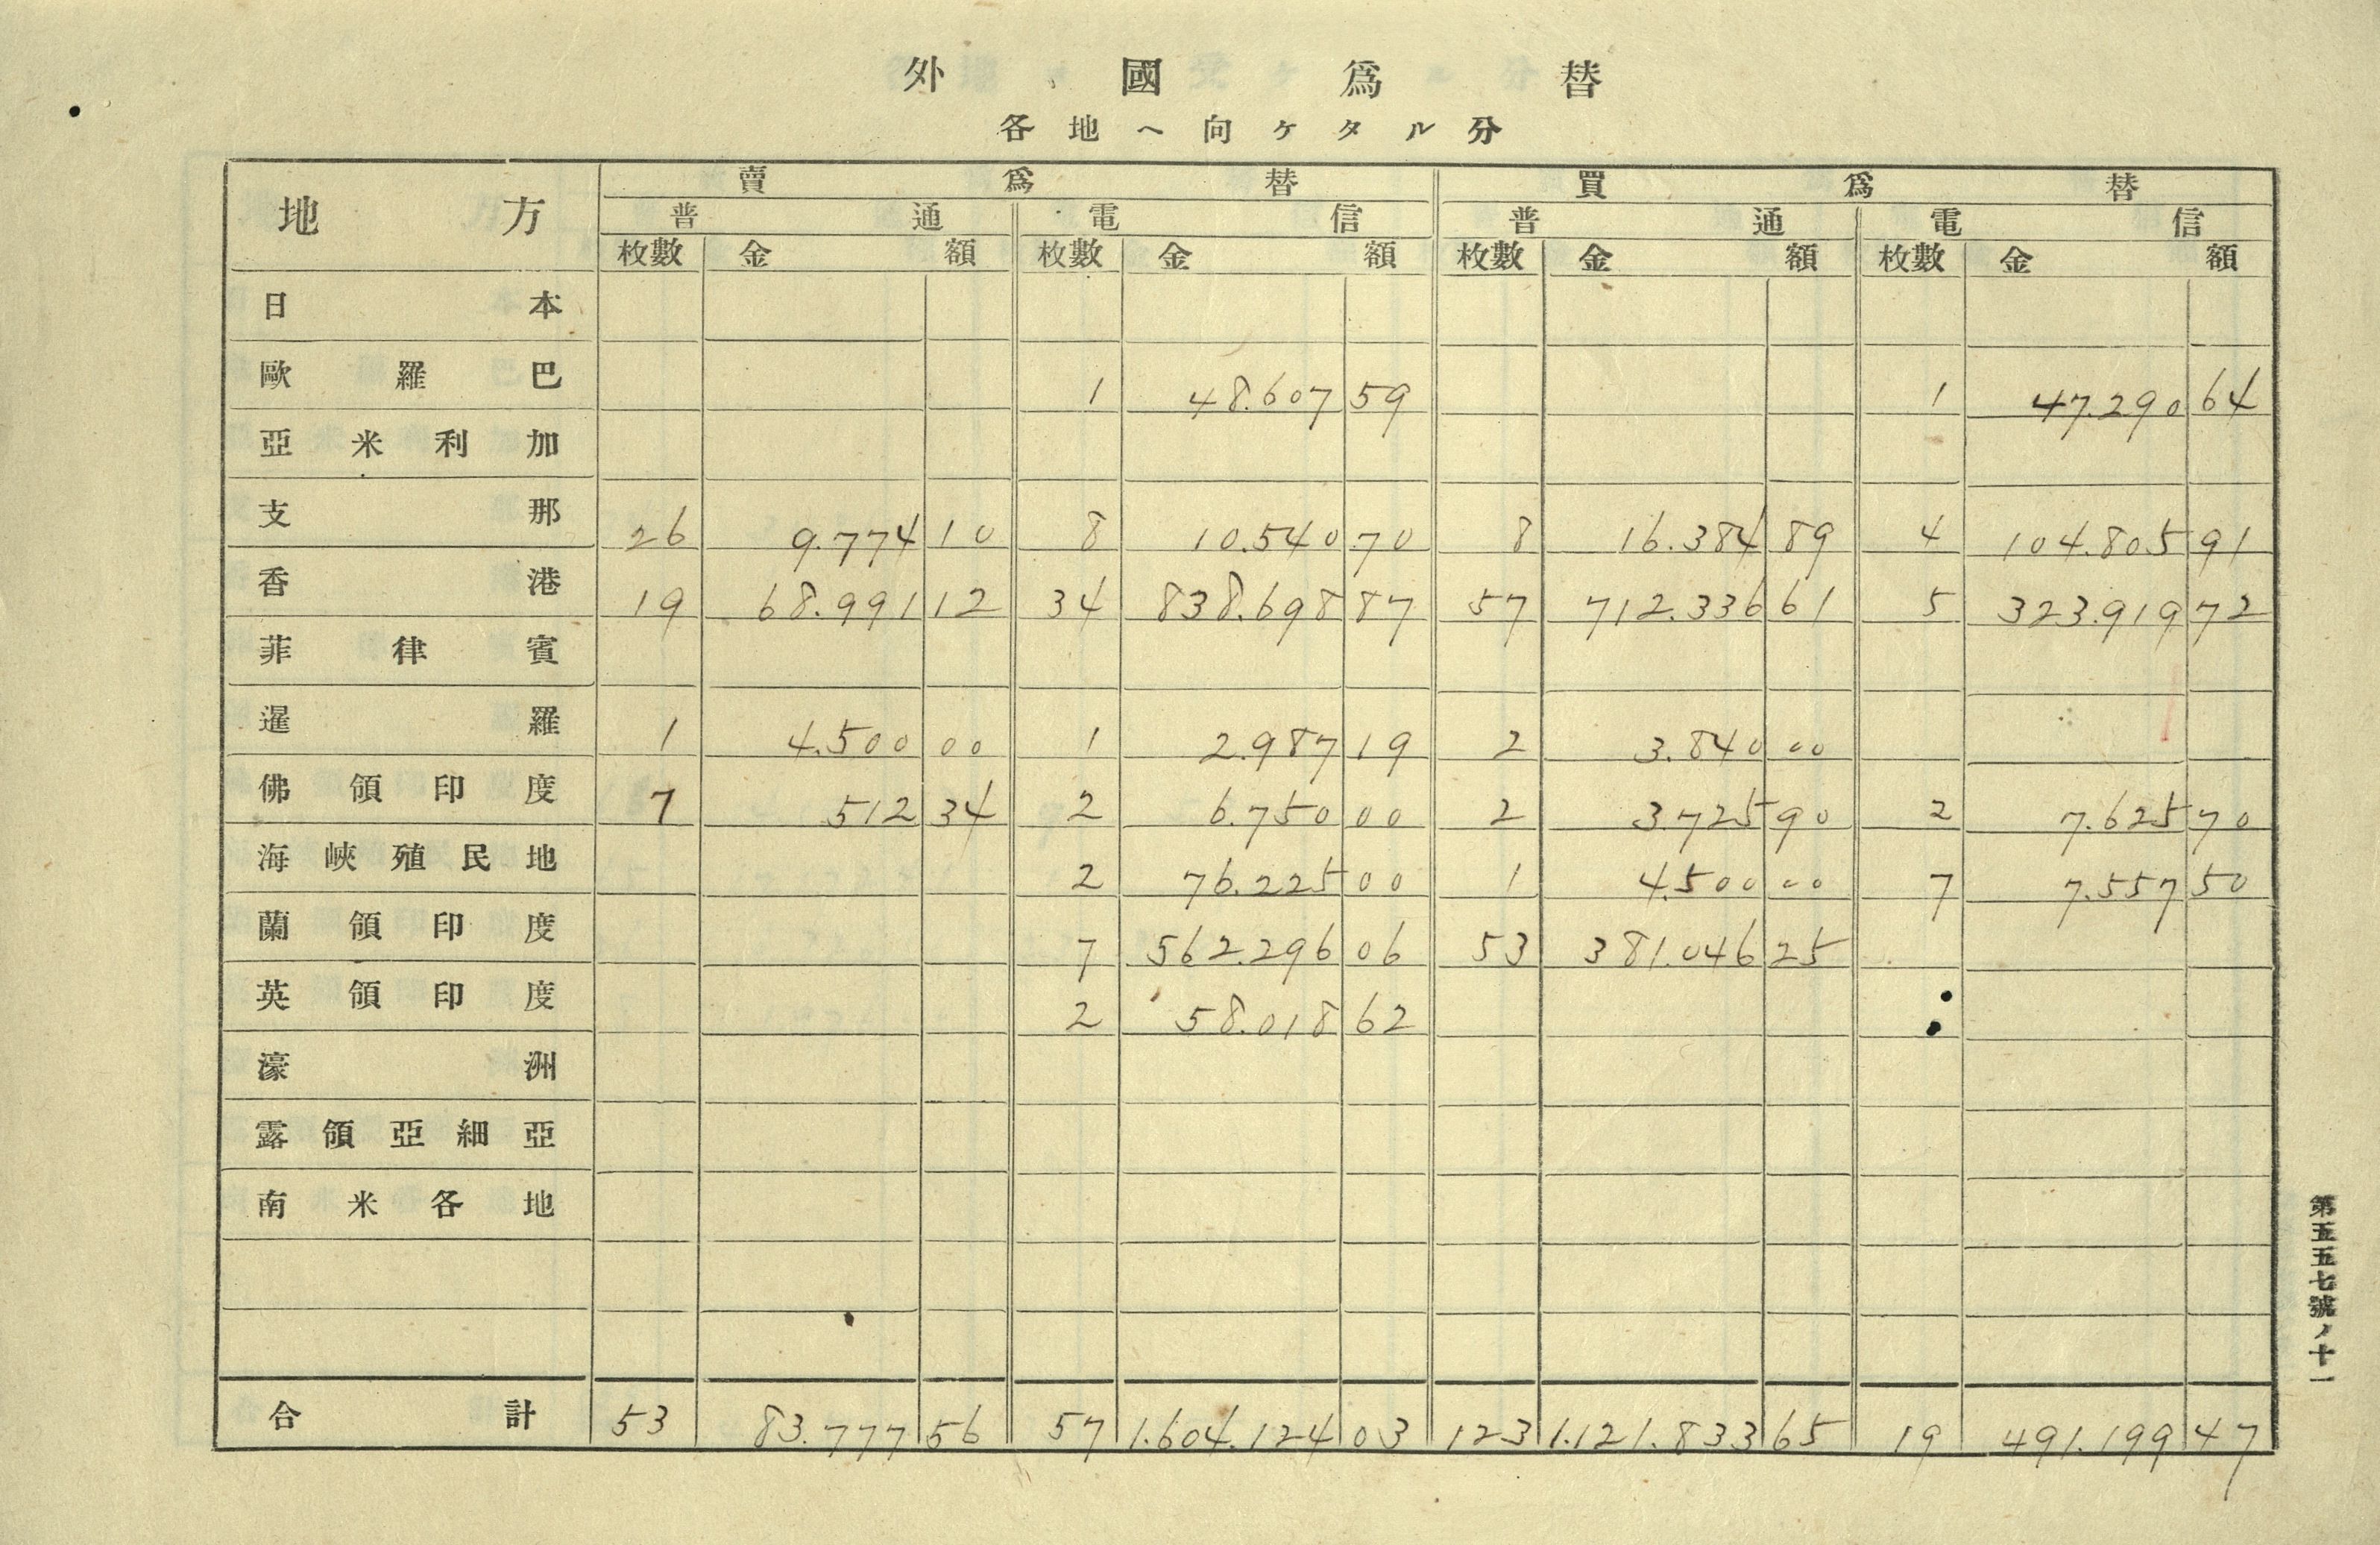 外國爲替
各地ヘ向ケタル分
地方 賣爲替 買爲替
普通 電信 普通 電信
枚數 金額 枚數 金額 枚數 金額 枚數 金額
日本
歐羅巴 1 48.607 59 1 47.290 64
亞米利加
支那 26 9.774 10 8 10.540 70 8 16.384 89 4 104.805 91
香港 19 68.991 12 34 838.698 87 57 712.336 61 5 323.919 72
菲律賓
暹羅 1 4.500 00 1 2.987 19 2 3.840 00
佛領印度 7 512 34 2 6.750 00 2 3.725 90 2 7.625 70
海峽殖民地 2 76.225 00 1 4.500 00 7 7.557 50
蘭領印度 7 562.296 06 53 381.046 25
英領印度 2 58.018 62
濠洲
露領亞細亞
南米各地
合計 53 83.777 56 57 1.604.124 03 123 1.121.833 65 19 491.199 47
第五五七號ノ十一